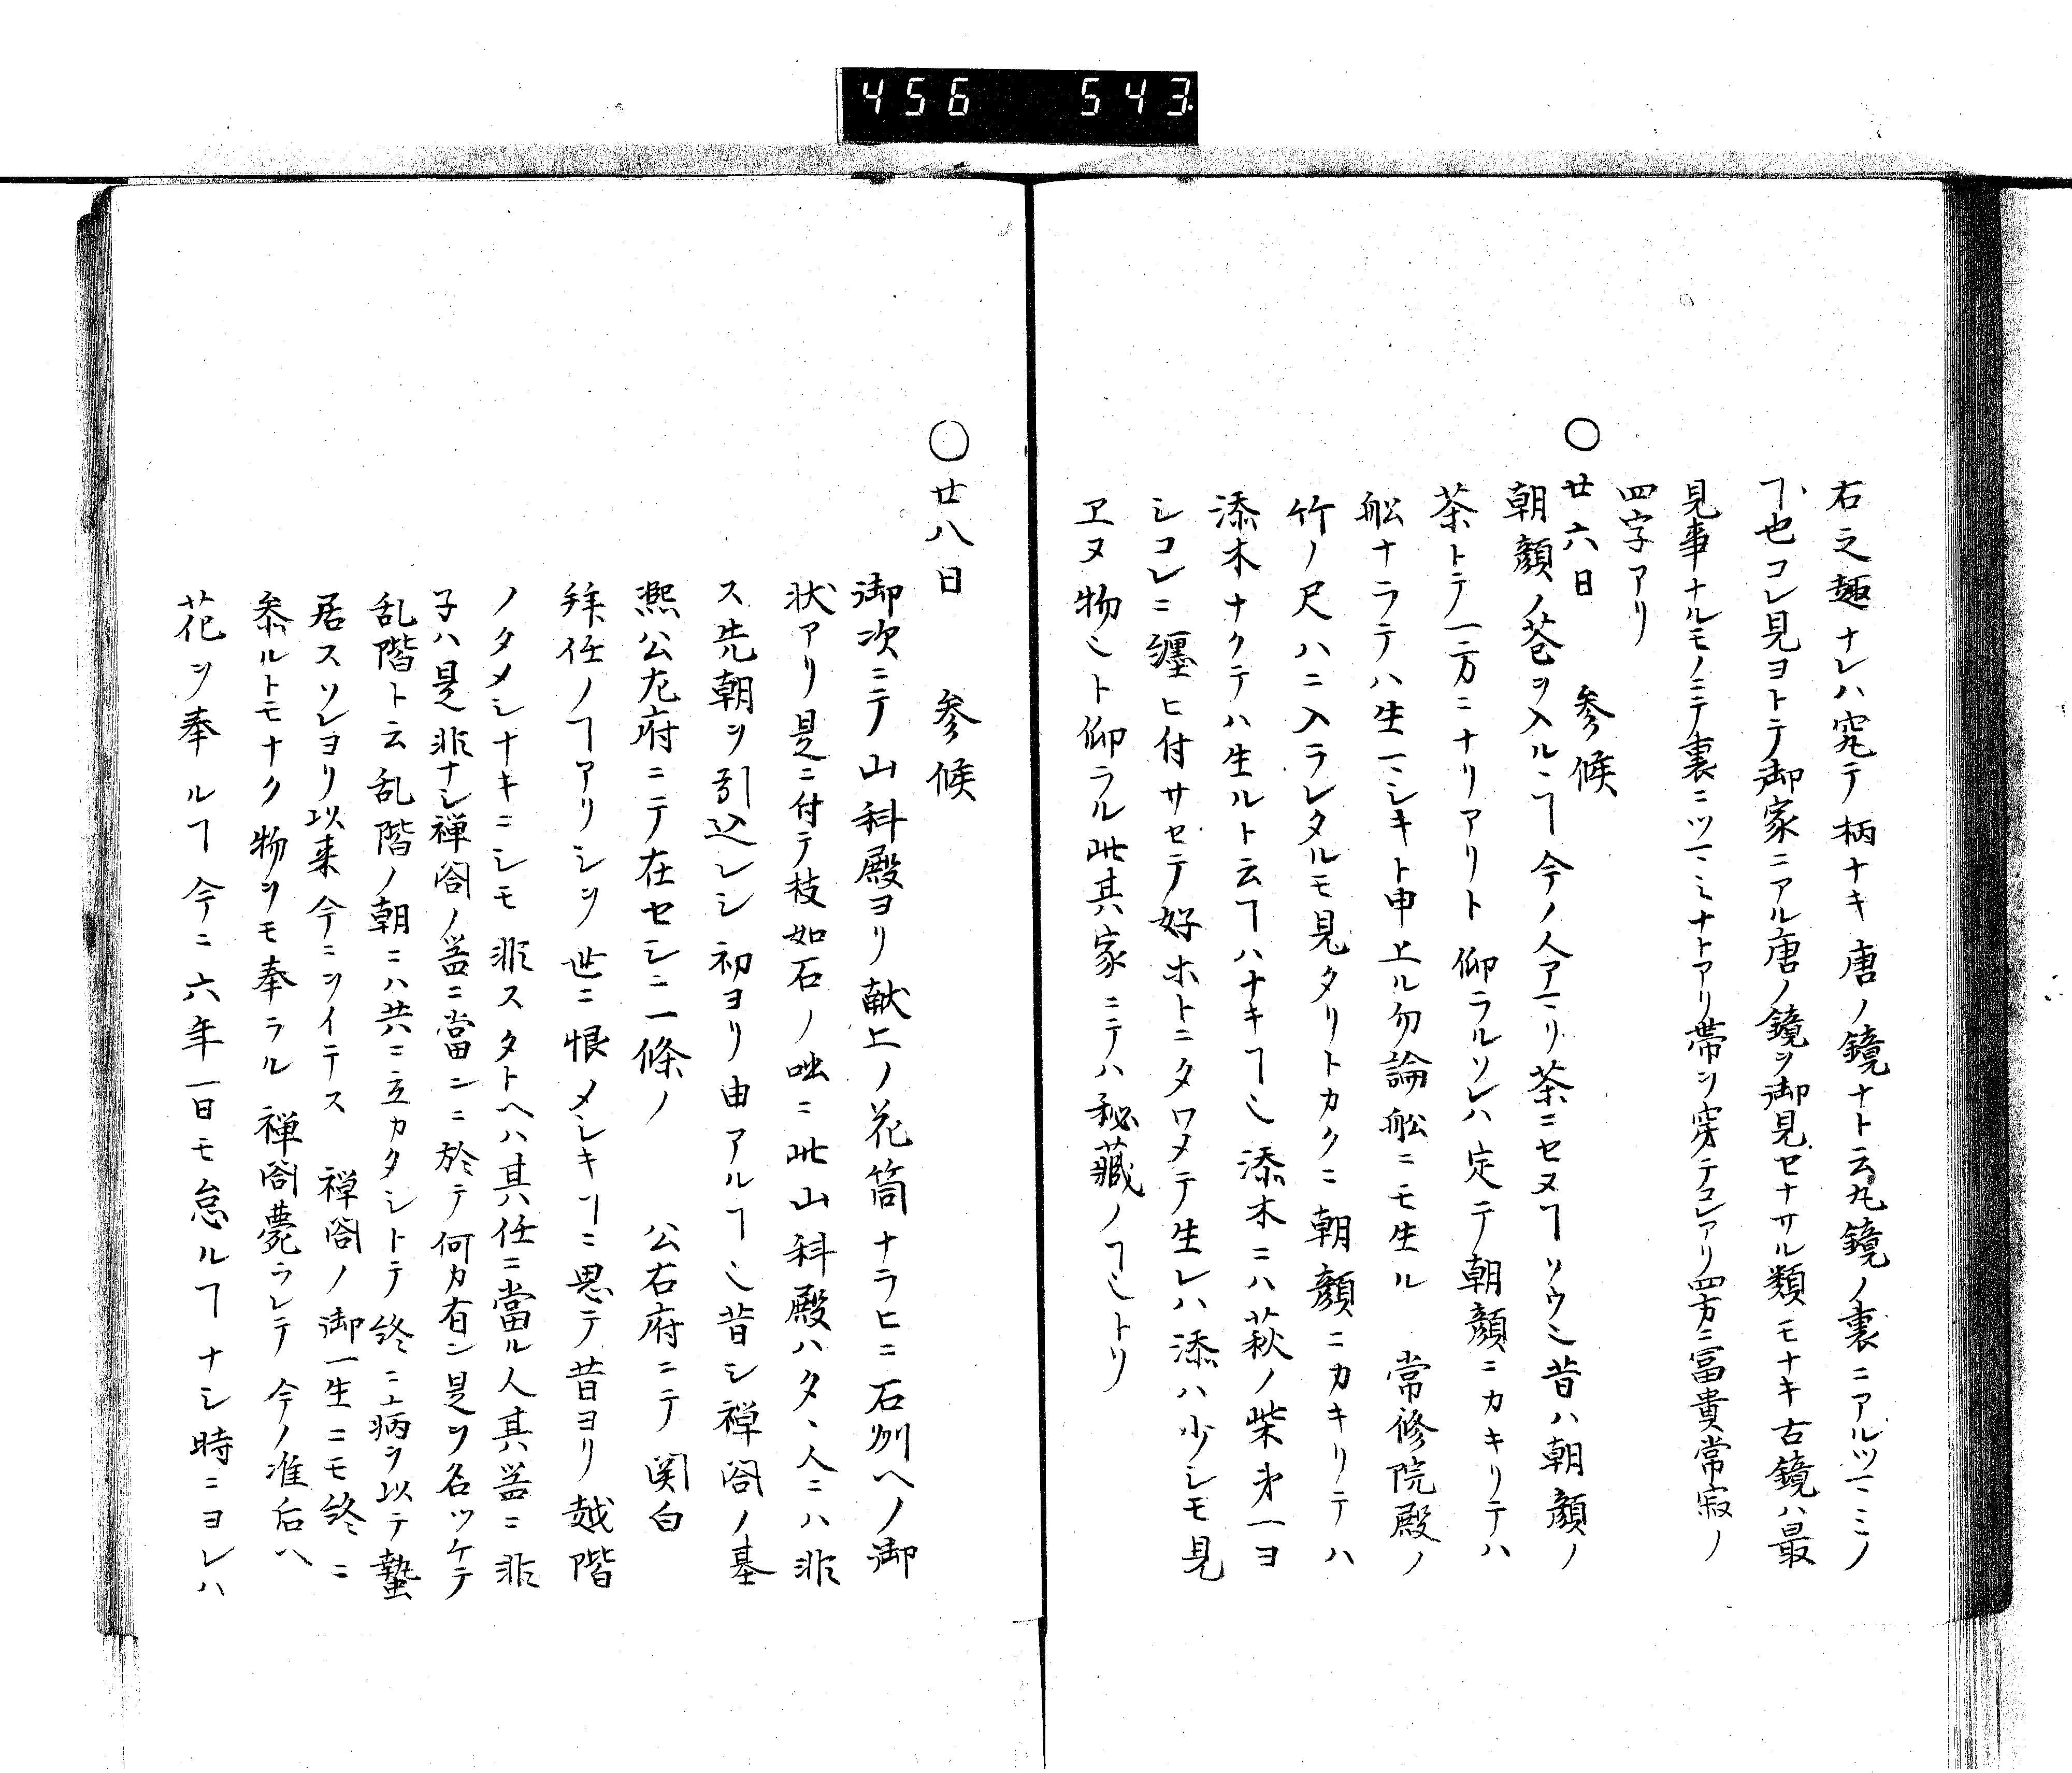 456 543
右之趣ナレハ究テ柄ナキ唐ノ鏡ナト云丸鏡ノ裏ニアルツマミノ
ヿ也コレ見ヨトテ御家ニアル唐ノ鏡ヲ御見セナサル類モナキ古鏡ハ最
見事ナルモノニテ裏ニツマミナトアリ帯ヲ穿テコレアリ四方ニ冨貴常寂ノ
四字アリ
〇廿六日 参候
朝顔ノ莟ヲ入ルヽヿ今ノ人アマリ茶ニセヌヿソウ也昔ハ朝顔ノ
茶トテ一方ニナリアリト仰ラルソレハ定テ朝顔ニカキリテハ
舩ナラテハ生マシキト申上ル勿論舩ニモ生ル 常修院殿ノ
竹ノ尺ハニ入ラレタルモ見タリトカクニ朝顔ニカキリテハ
添木ナクテハ生ルト云ヿハナキヿ也添木ニハ萩ノ柴第一ヨ
シコレニ纏ヒ付サセテ好ホトニタワメテ生レハ添ハ少シモ見
エヌ物也ト仰ラル此其家ニテハ秘蔵ノヿ也トソ
〇廿八日 参候
御次ニテ山科殿ヨリ献上ノ花筒ナラヒニ石州ヘノ御
状アリ是ニ付テ枝如石ノ咄ニ此山科殿ハタヽ人ニハ非
ス先朝ヲ引込レシ初ヨリ由アルヿ也昔シ禅閤ノ基
熈公左府ニテ在セシニ一條ノ 公右府ニテ関白
拜任ノヿアリシヲ世ニ恨メシキヿニ思テ昔ヨリ越階
ノタメシナキニシモ非スタトヘハ其任ニ當ル人其器ニ非
子ハ是非ナシ禅閤ノ器ニ當ンニ於テ何カ有ン是ヲ名ツケテ
乱階ト云乱階ノ朝ニハ共ニ立カタシトテ終ニ病ヲ以テ蟄
居スソレヨリ以来今ニヲイテス 禅閤ノ御一生ニモ終ニ
参ルトモナク物ヲモ奉ラル 禅閤薨ラレテ今ノ准后ヘ
花ヲ奉ルヿ今ニ六年一日モ怠ルヿナシ時ニヨレハ